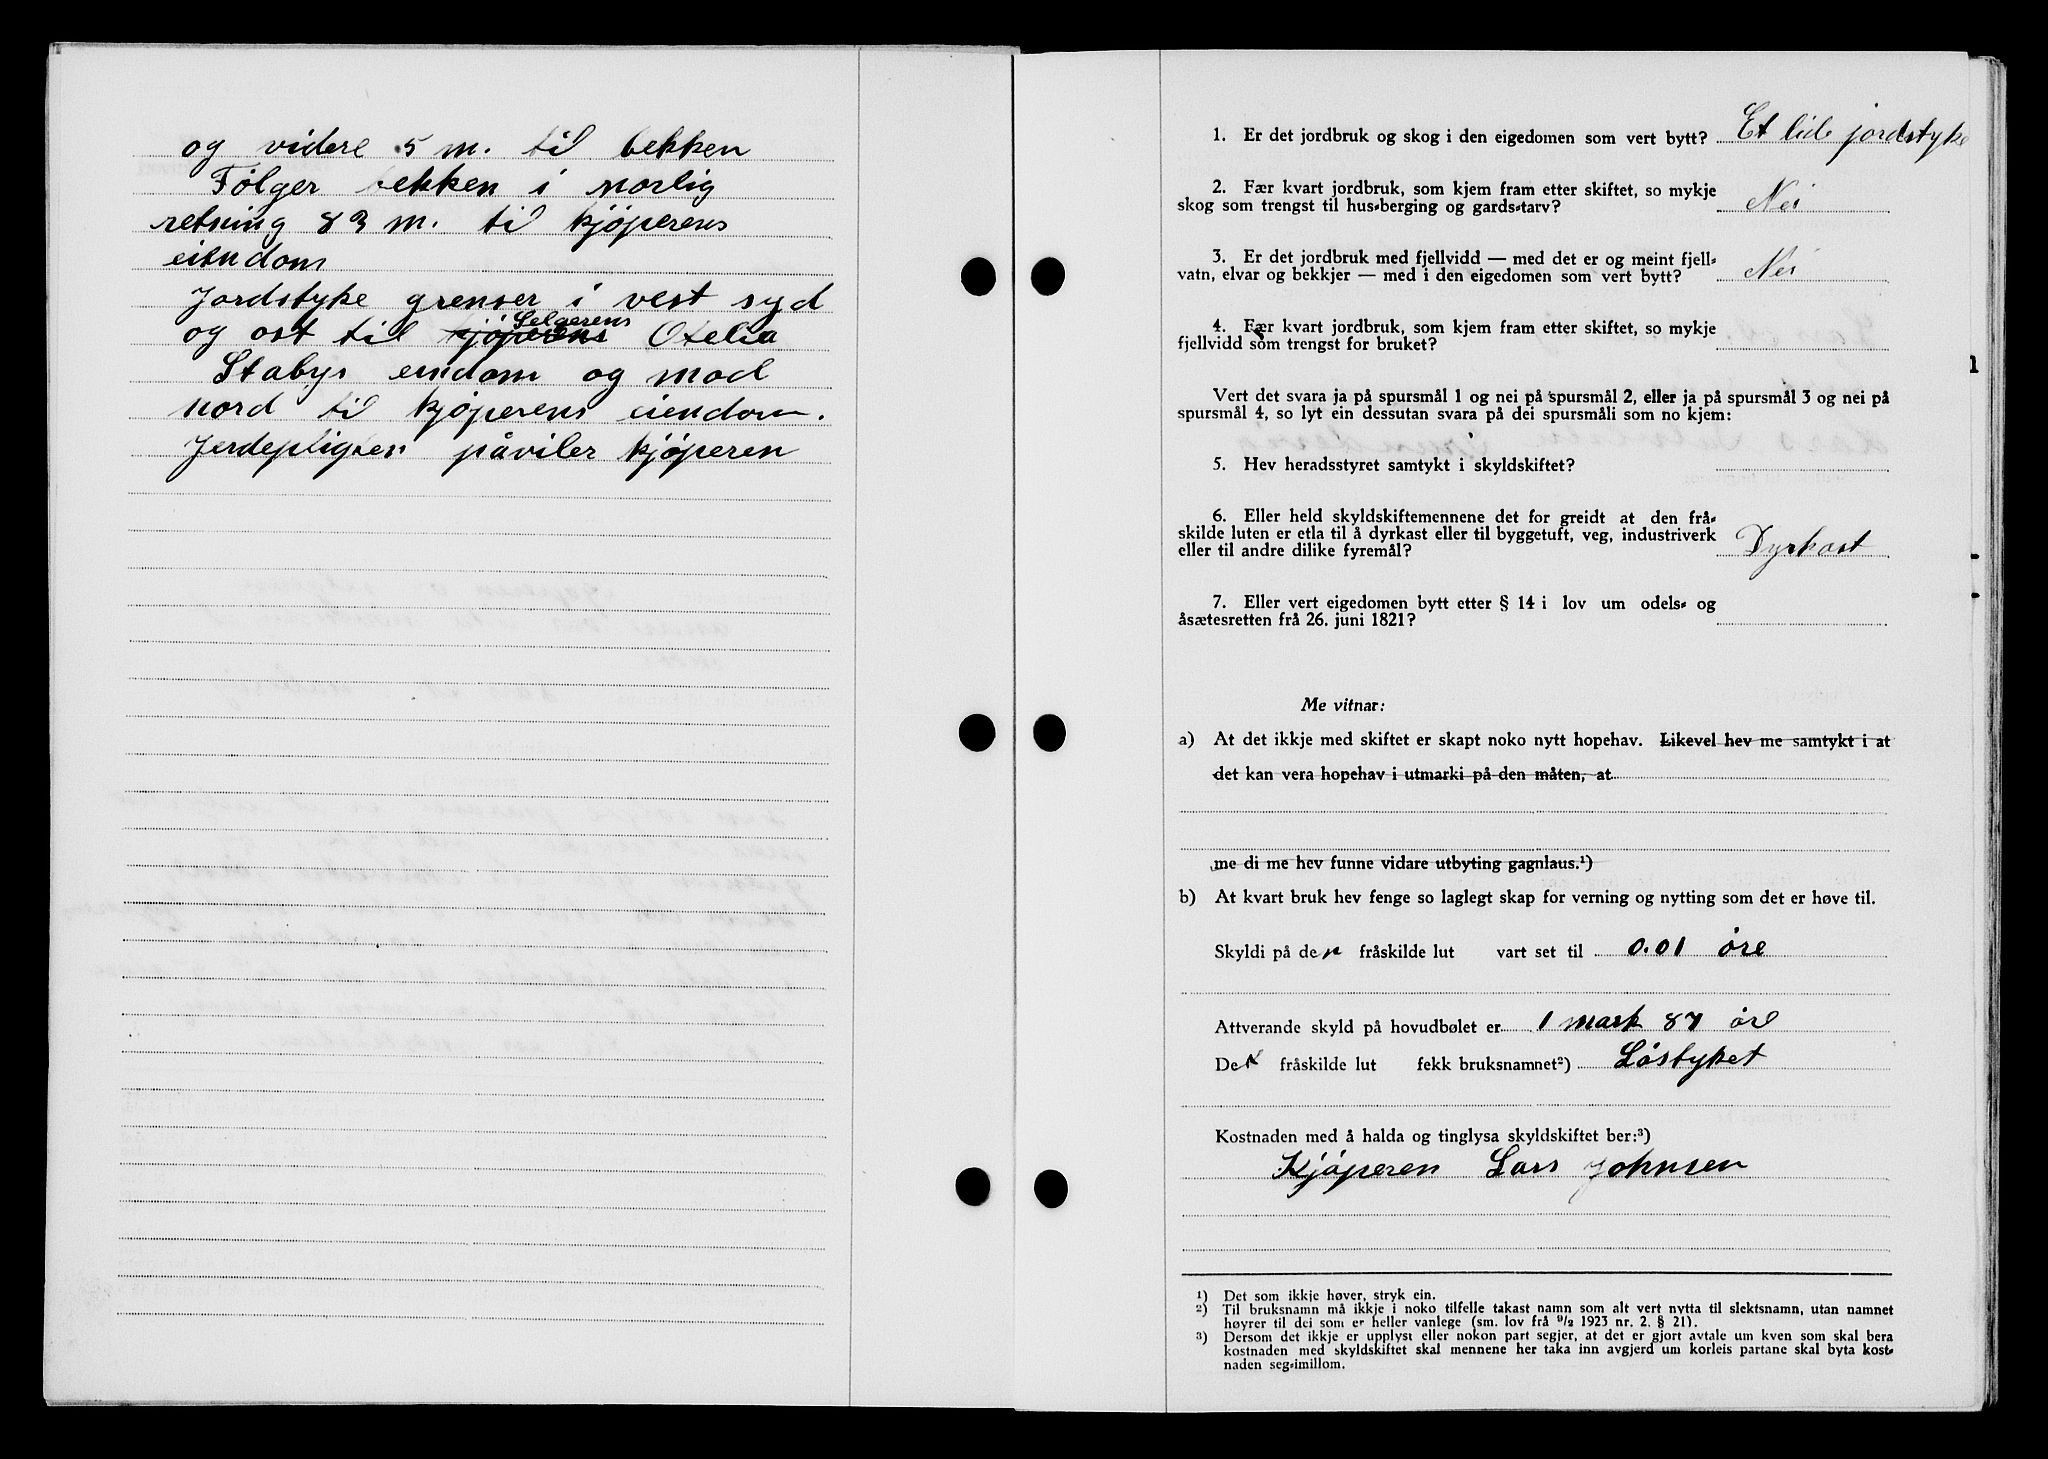 og videre 5 m. til bekken
Følger bekken i norlig
retning 83 m. til kjøperens
eiendom
Jordstyke grenser i vest syd
Selgerens
og ost til kjøperens Otelia
Stabys eindom og mod
nord til kjøperens eiendom.
Jerdepligten påviler kjøperen
1. Er det jordbruk og skog i den eigedomen som vert bytt? Et lide jordstyke
2. Fær kvart jordbruk, som kjem fram etter skiftet, so mykje
skog som trengst til hus-berging og gards-tarv? Nei
3. Er det jordbruk med fjellvidd — med det er og meint fjell-
vatn, elvar og bekkjer — med i den eigedomen som vert bytt? Nei
4. Fær kvart jordbruk, som kjem fram etter skiftet, so mykje
fjellvidd som trengst for bruket?
Vert det svara ja på spursmål 1 og nei på spursmål 2, eller ja på spursmål 3 og nei på
spursmål 4, so lyt ein dessutan svara på dei spursmåli som no kjem:
5. Hev heradsstyret samtykt i skyldskiftet?
6. Eller held skyldskiftemennene det for greidt at den frå-
skilde luten er etla til å dyrkast eller til byggetuft, veg, industriverk
eller til andre dilike fyremål? Dyrkast
7. Eller vert eigedomen bytt etter § 14 i lov um odels- og
åsætesretten frå 26. juni 1821?
Me vitnar:
a) At det ikkje med skiftet er skapt noko nytt hopehav. Likevel hev me samtykt i at
det kan vera hopehav i utmarki på den måten, at
me di me hev funne vidare utbyting gagnlaus.¹)
b) At kvart bruk hev fenge so laglegt skap for verning og nytting som det er høve til.
Skyldi på den fråskilde lut vart set til 0.01 øre
Attverande skyld på hovudbølet er 1 mark 87 øre
Den fråskilde lut fekk bruksnamnet²) Løstyket
Kostnaden med å halda og tinglysa skyldskiftet ber:³)
Kjøperen Lars Johnsen
¹) Det som ikkje høver, stryk ein.
²) Til bruksnamn må ikkje i noko tilfelle takast namn som alt vert nytta til slektsnamn, utan namnet
høyrer til dei som er heller vanlege (sm. lov frå 9/2 1923 nr. 2. § 21).
³) Dersom det ikkje er upplyst eller nokon part segjer, at det er gjort avtale um kven som skal bera
kostnaden med skyldskiftet skal mennene her taka inn avgjerd um korleis partane skal byta kost-
naden seg-imillom.